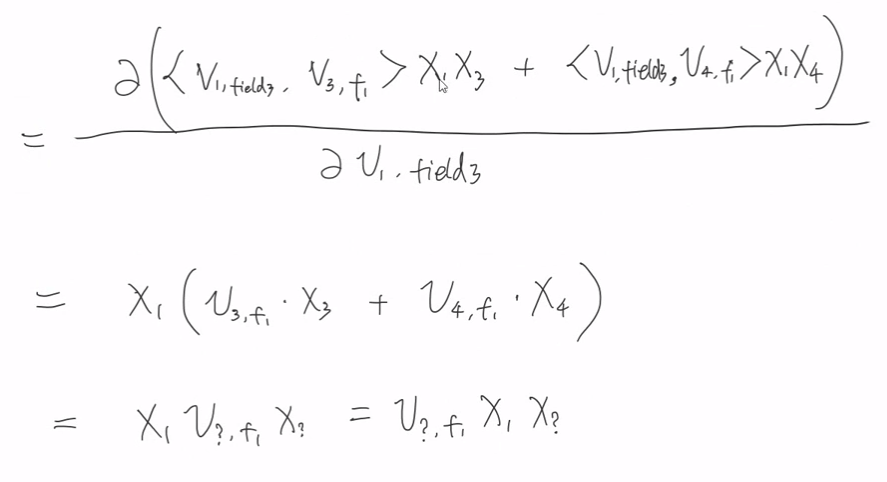 ∂(<V₁,field₃, V₃,f₁> X₁X₃ + <V₁,field₃, V₄,f₁> X₁X₄)
=
∂V₁,field₃
= X₁(V₃,f₁ · X₃ + V₄,f₁ · X₄)
= X₁ V?,f₁ X? = V?,f₁ X₁ X?